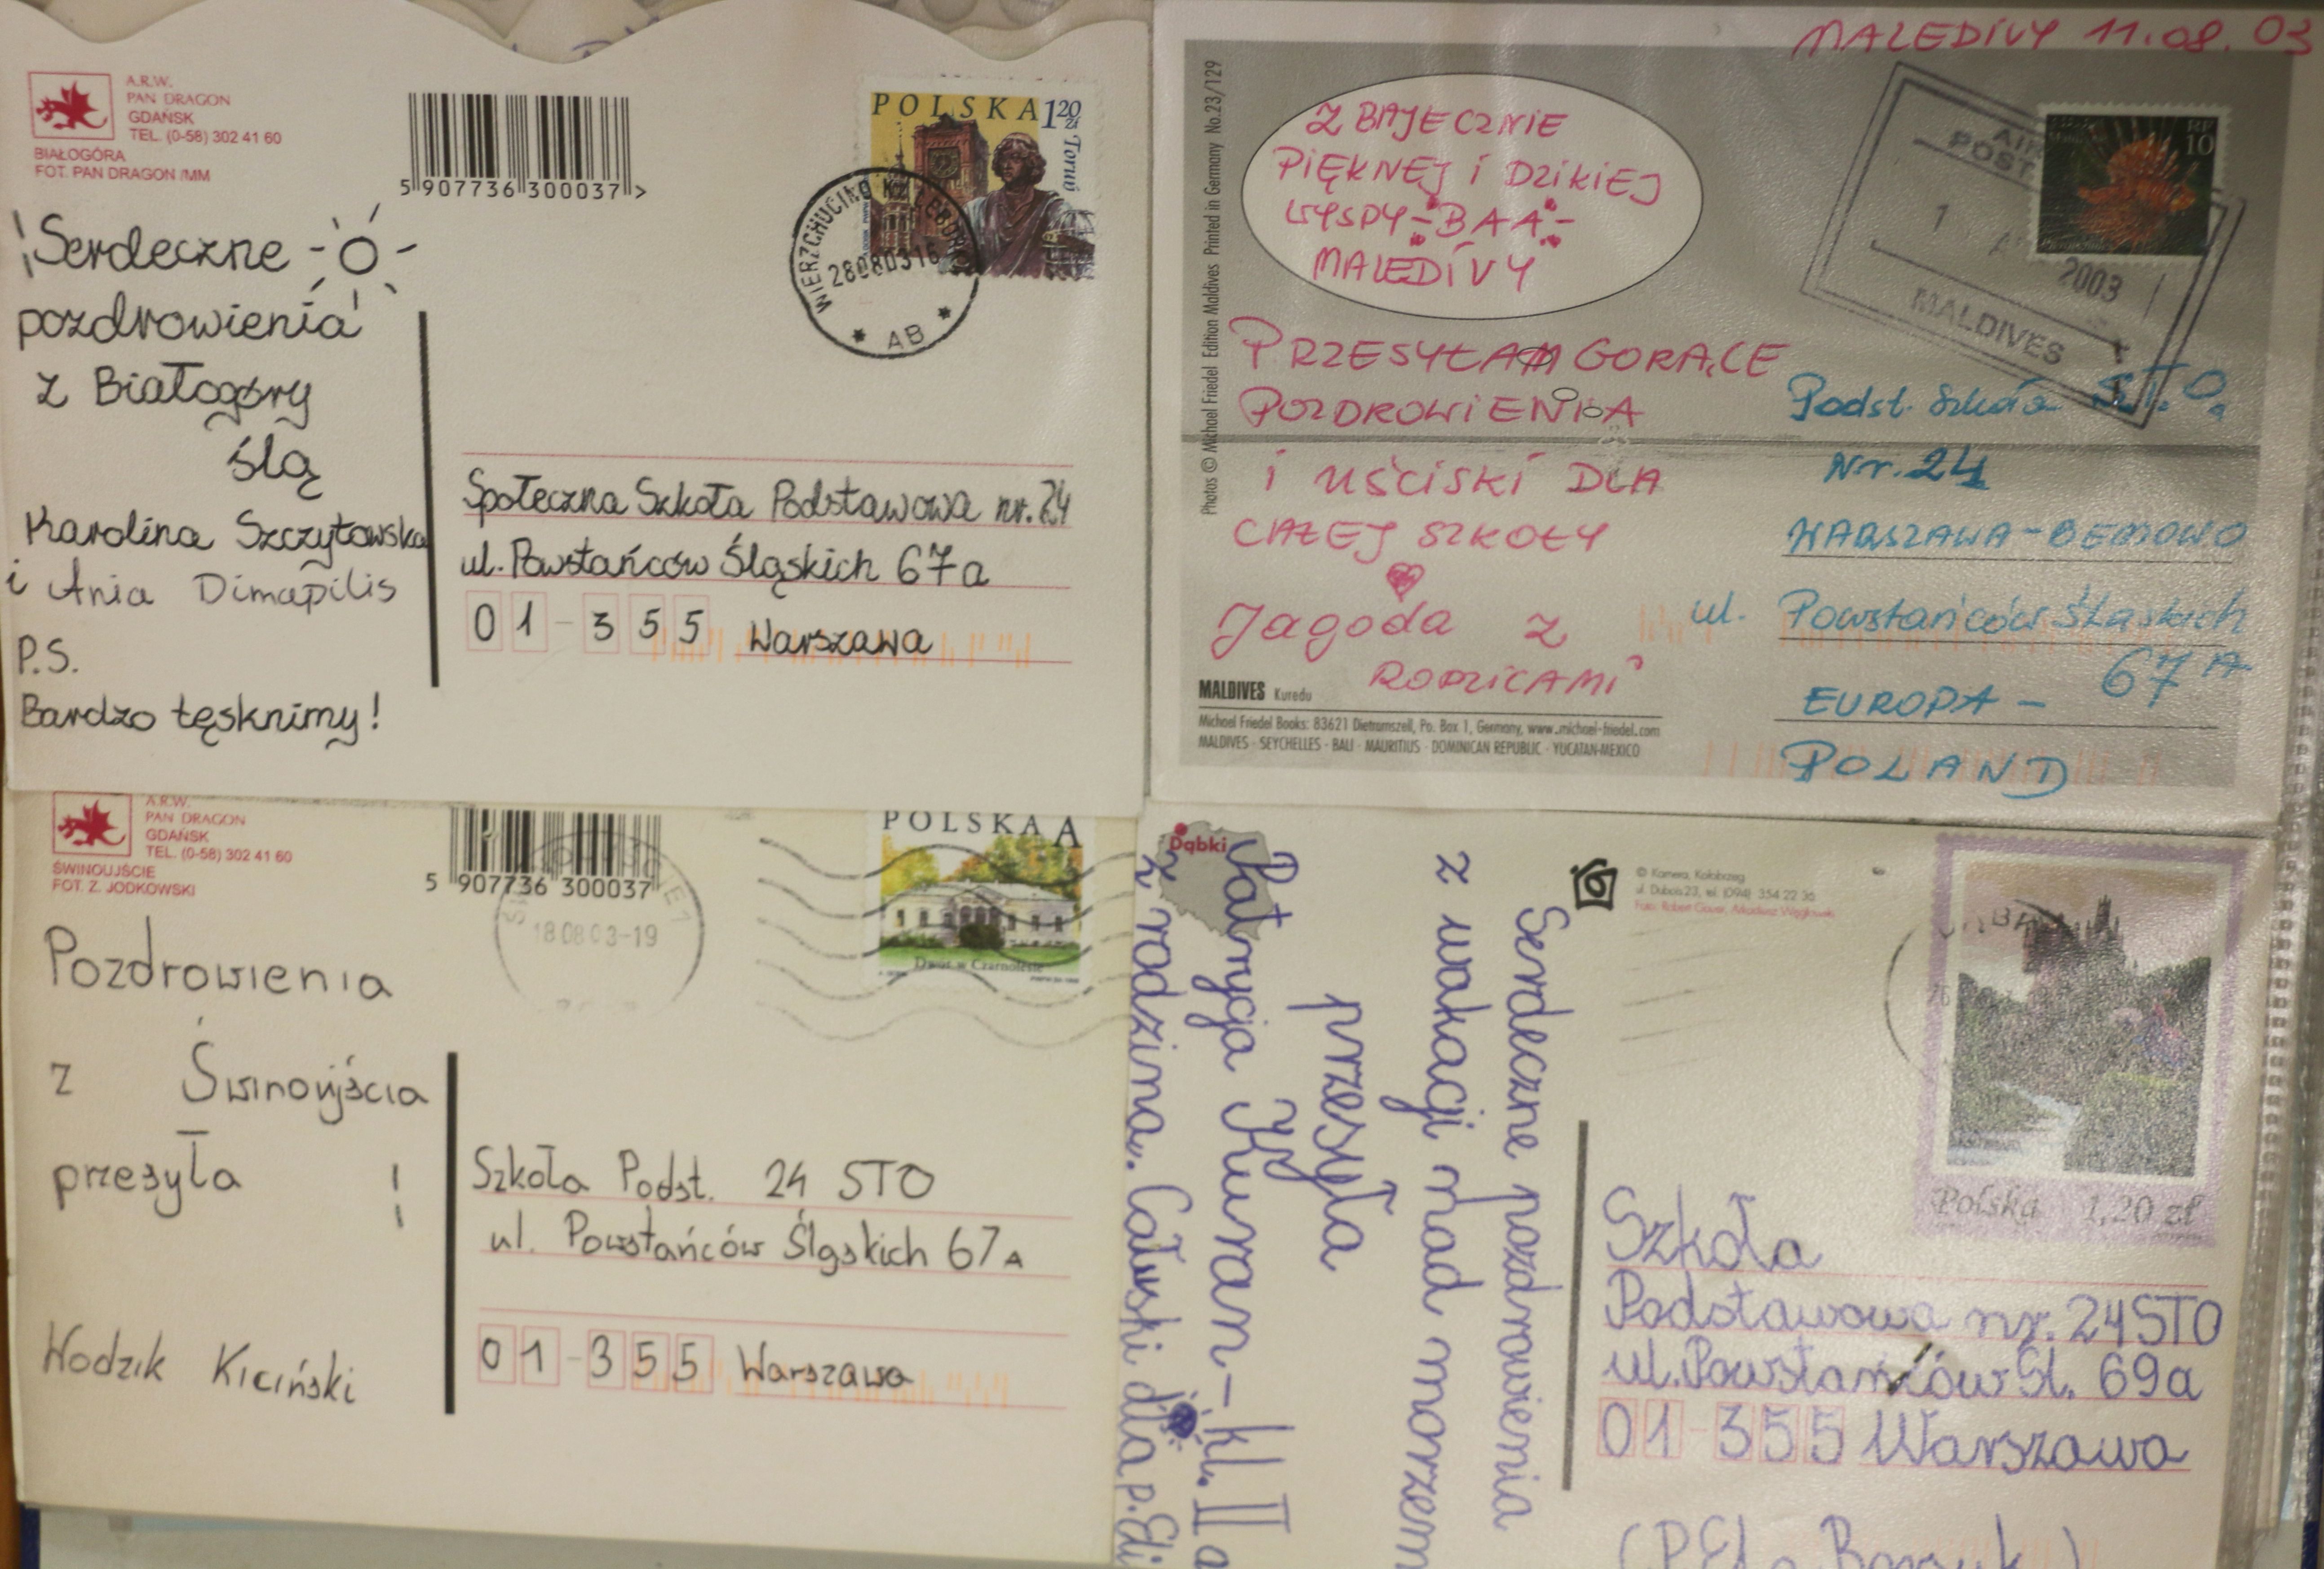 A.R.W.
PAN DRAGON
GDAŃSK
TEL. (0-58) 302 41 60
BIAŁOGÓRA
FOT. PAN DRAGON /MM
5 907736 300037 >
POLSKA 1 20 zł
Toruń
WIERZCHUCINO K/LĘBORKA
28080316
* AB *
Serdeczne
pozdrowienia
z Białogóry
ślą
Karolina Szczytowska
i Ania Dimapilis
P.S.
Bardzo tęsknimy!
Społeczna Szkoła Podstawowa nr. 24
ul. Powstańców Śląskich 67a
01-355 Warszawa
MALEDIVY 11.08.03
Z BAJECZNIE
PIĘKNEJ i DZIKIEJ
WYSPY-BAA-
MALEDIVY
PRZESYŁAM GORĄCE
POZDROWIENIA
i UŚCISKI DLA
CAŁEJ SZKOŁY
Jagoda z
RODZICAMI
Photos © Michael Friedel Edition Maldives Printed in Germany No.23/129
MALDIVES Kuredu
Michael Friedel Books: 83621 Dietramszell, Po. Box 1, Germany, www.michael-friedel.com
MALDIVES · SEYCHELLES · BALI · MAURITIUS · DOMINICAN REPUBLIC · YUCATAN-MEXICO
RF
10
POST
2003
MALDIVES
Podst. Szkoła S.T.O.
Nr. 24
WARSZAWA-BEMOWO
ul. Powstańców Śląskich
67 A
EUROPA -
POLAND
A.R.W.
PAN DRAGON
GDAŃSK
TEL. (0-58) 302 41 60
ŚWINOUJŚCIE
FOT. Z. JODKOWSKI
5 907736 300037
18 08 03-19
POLSKA A
Dwór w Czarnolesie
Pozdrowienia
z Świnoujścia
przesyła
Wodzik Kiciński
Szkoła Podst. 24 STO
ul. Powstańców Śląskich 67A
01-355 Warszawa
Dąbki
Serdeczne pozdrowienia
z wakacji nad morzem
przesyła
Patrycja Kuran-kl. II a
z rodziną. Całuski dla p. Eli
© Kamera, Kołobrzeg
ul. Dubois 23, tel. (094) 354 22 36
Polska 1,20 zł
Szkoła
Podstawowa nr. 24 STO
ul. Powstańców Śl. 69a
01-355 Warszawa